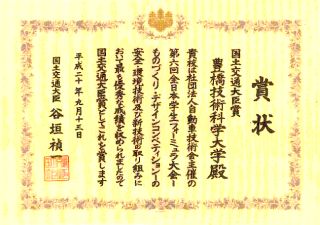 賞状
国土交通大臣賞
豊橋技術科学大学殿
貴校は社団法人自動車技術会主催の
第六回全日本学生フォーミュラ大会－
ものづくり・デザインコンペティション－の
安全・環境技術及び新技術の取り組みに
おいて最も優秀な成績を収められましたので
国土交通大臣賞としてこれを賞します
平成二十年九月十三日
国土交通大臣 谷垣禎一